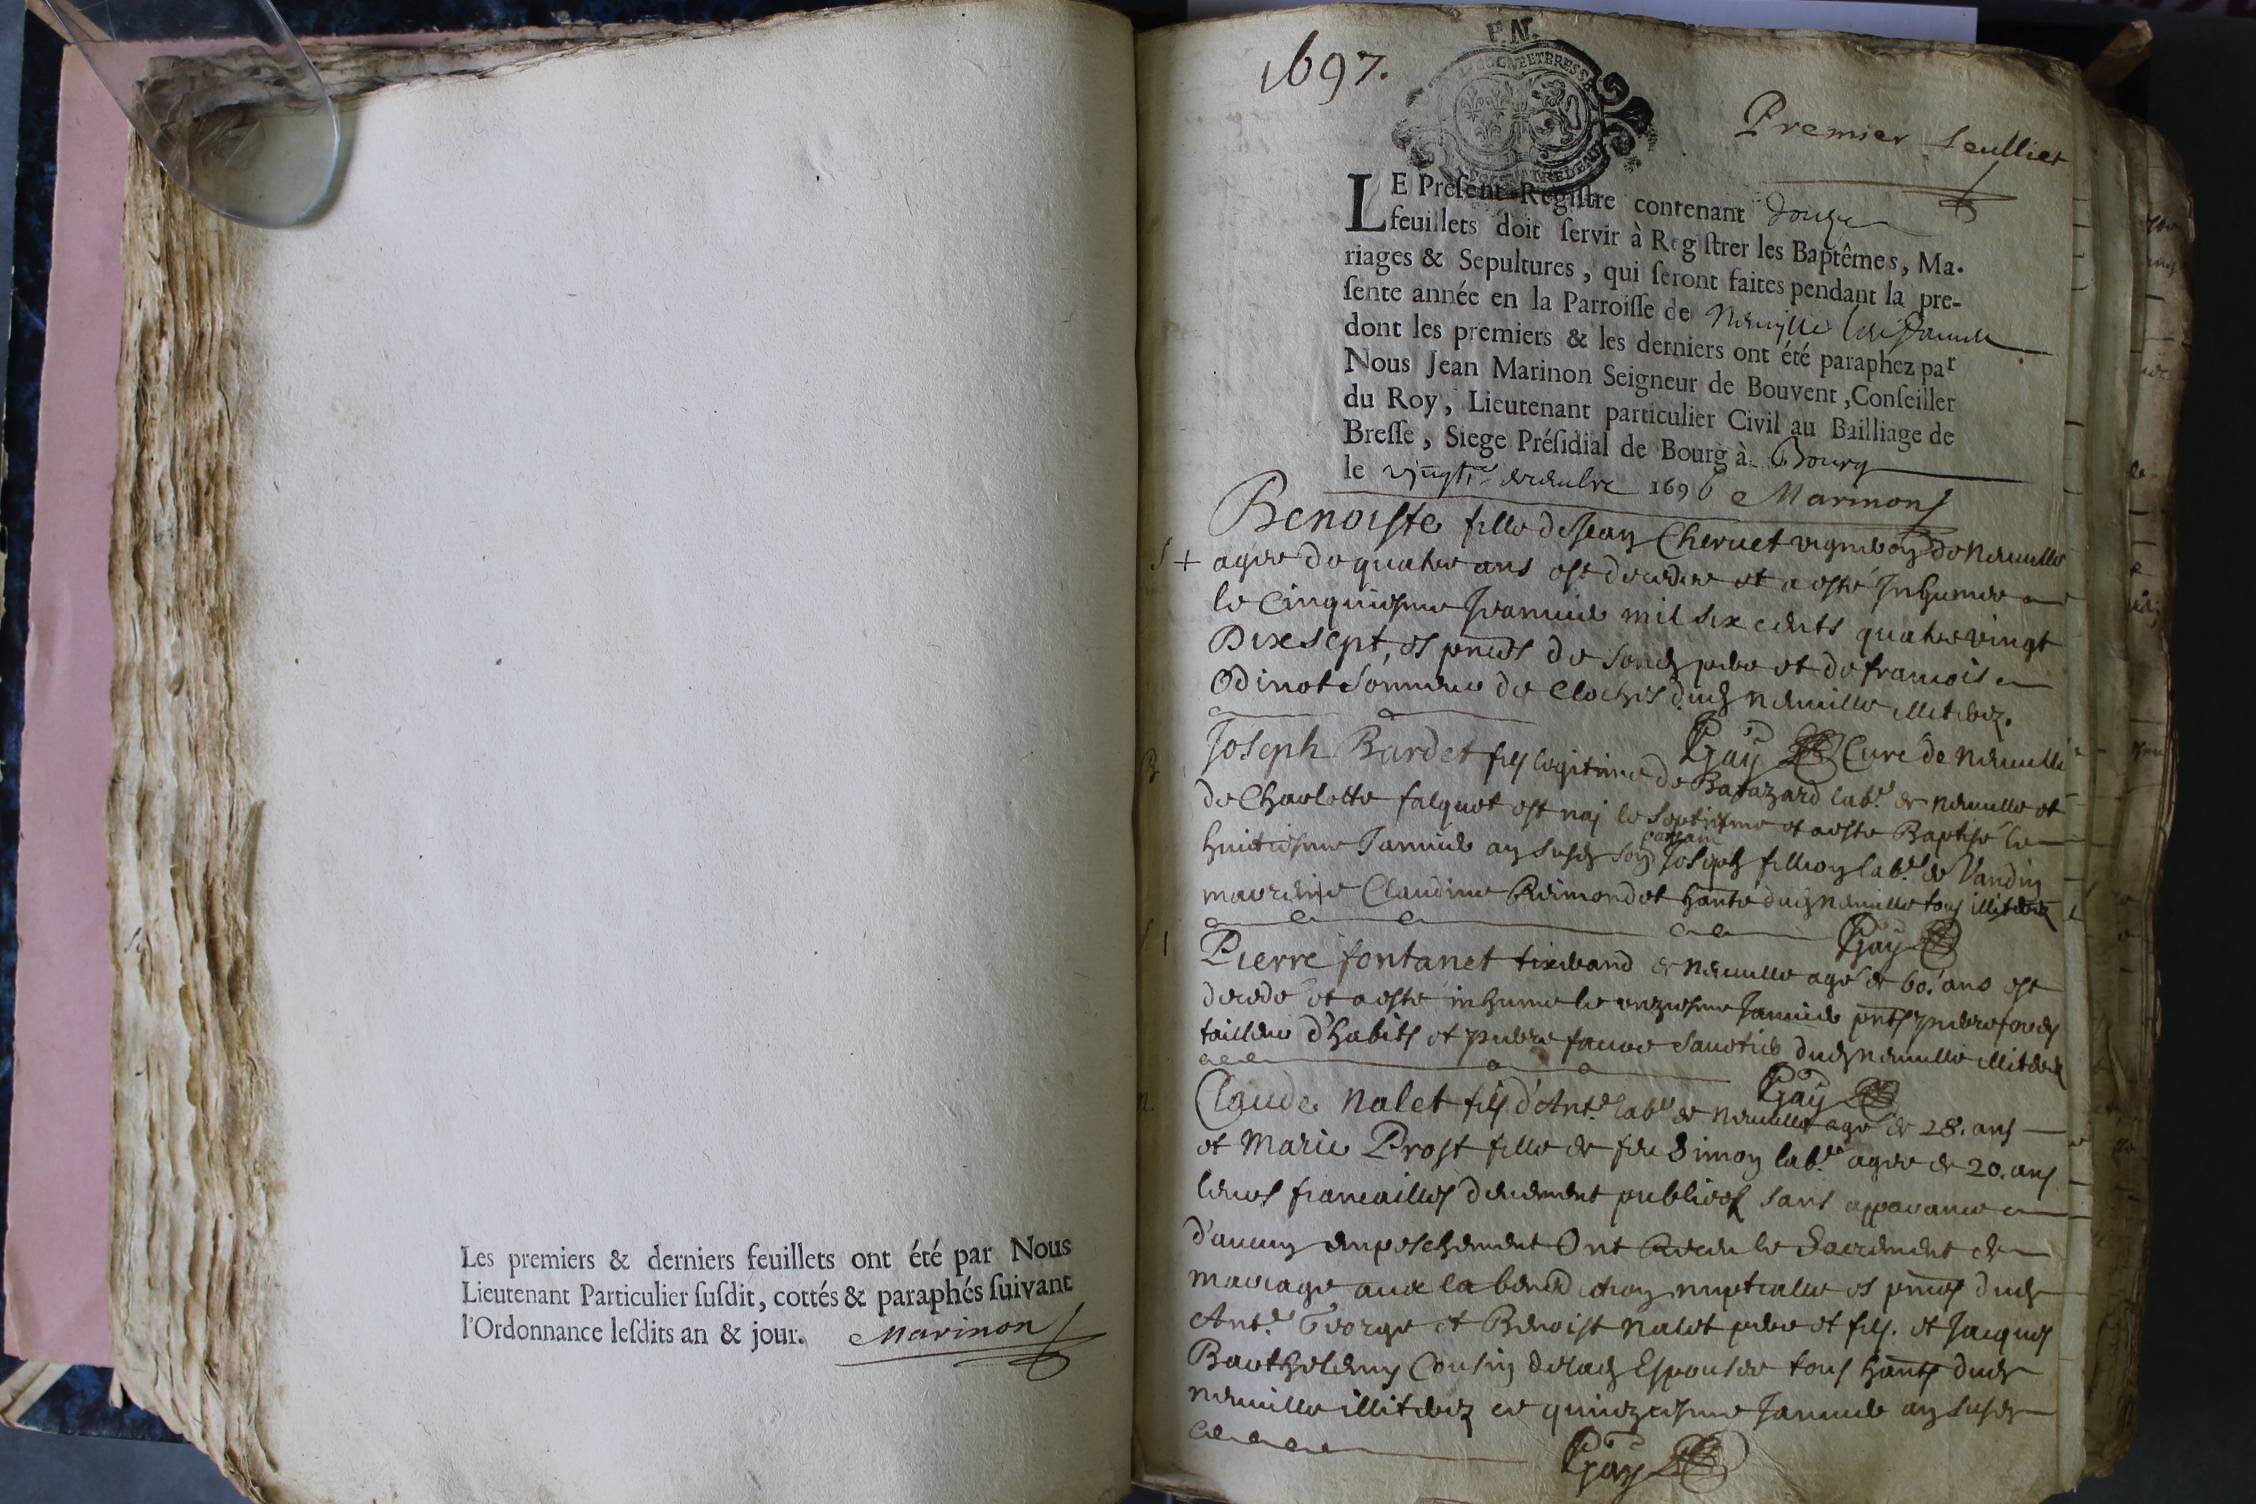 Les premiers & derniers feuillets ont été par Nous
Lieutenant Particulier ſuſdit, cottés & paraphés ſuivant
l'Ordonnance leſdits an & jour. Marinon
1697.
F. N.
Premier feulliet
LE Preſent Regiſtre contenant douze
feuillets doit ſervir à Regiſtrer les Baptêmes, Ma-
riages & Sepultures, qui ſeront faites pendant la pre-
ſente année en la Parroiſſe de Neuville
dont les premiers & les derniers ont été paraphez par
Nous Jean Marinon Seigneur de Bouvent, Conſeiller
du Roy, Lieutenant particulier Civil au Bailliage de
Breſſe, Siege Préſidial de Bourg à Bourg
le vingt decembre 1696 Marinon
Benoiste fille de Jean Chervet vigneron de Neuuille
S + agee de quatre ans est decedee et a esté Inhumee
le Cinquiesme Januier mil six cents quatre vingt
Dixsept, es pnces de sond pere et de francois
Odinot sonneur de cloches dud Neuuille illiterez.
Gay Curé de Neuuille
B Joseph Bardet fils legitime de Batazard labr de neuuille et
de Charlotte falquet est naj le septiesme et a este Baptisé le
huitiesme Januier an susd son parrain Joseph fillion labr de Vandin
marreine Claudine Reimondet hante dud Neuuille tous illiterez
Gay
S Pierre fontanet tixerand de Neuuille agé de 60. ans est
decedé et a esté inhumé le onziesme Januier pnts pierre
tailleur d'habits et pierre faure sauetier dud neuuille illiterez
Gay
m. Claude Nalet fils d'Ante labr de neuuille agé de 28. ans
et Marie Prost fille de feu Simon labr agee de 20. ans
leurs fiancailles deuement publiees sans apparance
d'aucun empeschement Ont Receu le Sacrement de
mariage auec la benediction nuptialle es pnces dud
Ante George et Benoist Nalet pere et fils. et Jacques
Barthelemy Cousin de lad Espousee tous hants dud
neuuille illiterez ce quinziesme Januier an susd
Gay